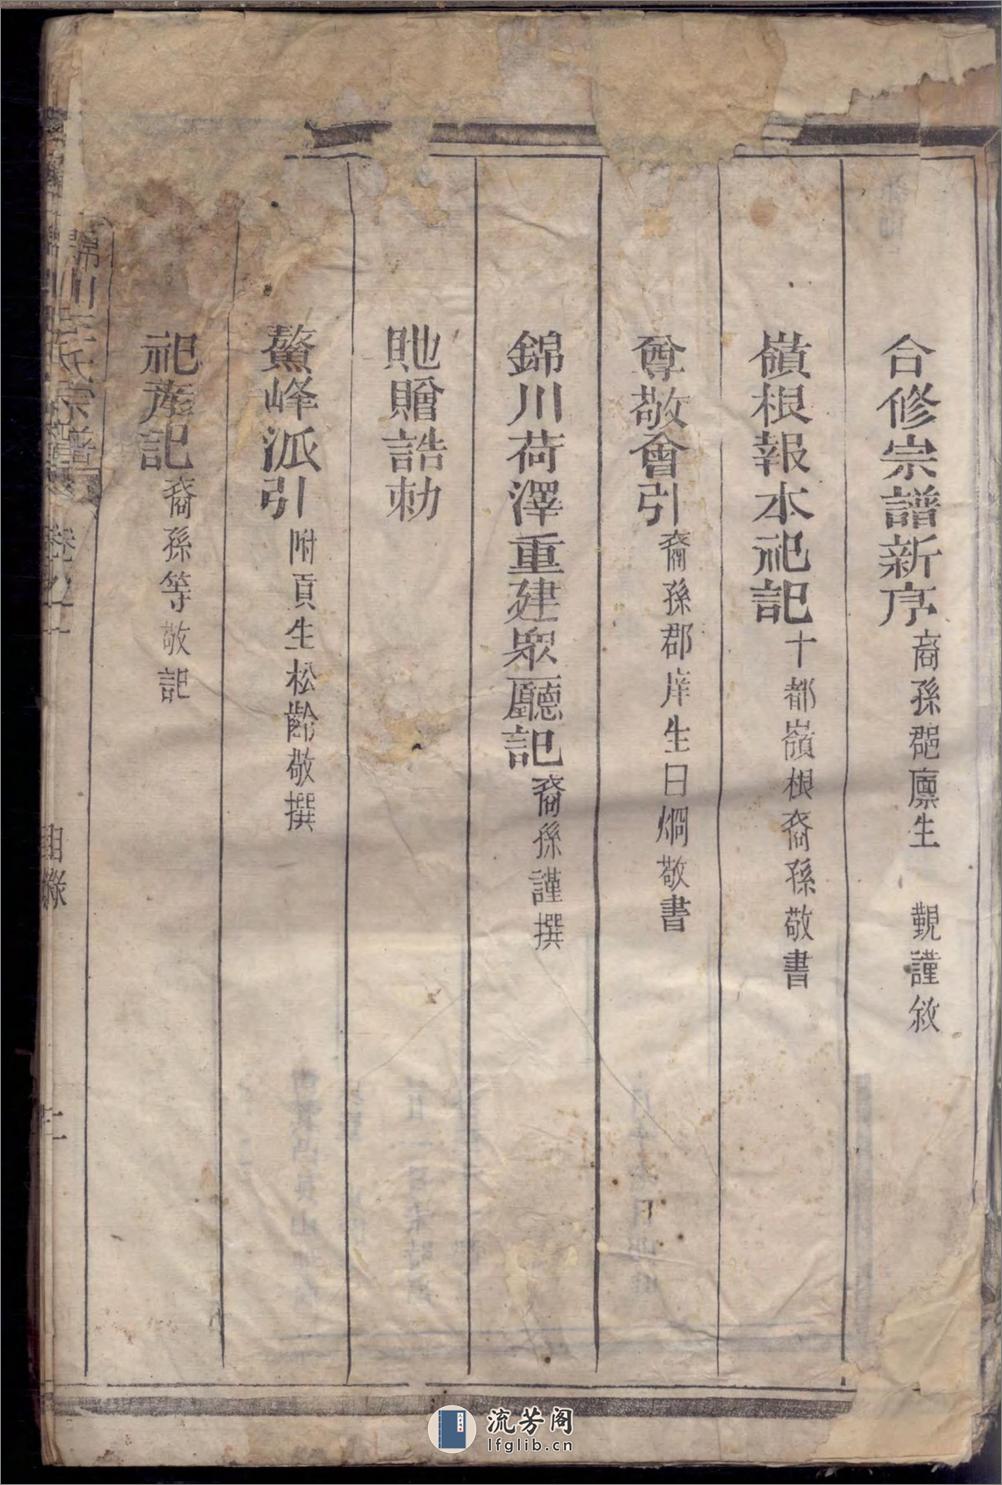 合修宗譜新序 裔孫郡廪生 觐謹敘
嶺根報本祀記 十都嶺根裔孫敬書
尊敬會引 裔孫郡庠生日烱敬書
錦川荷澤重建眾廳記 裔孫謹撰
貤贈誥勅
鰲峰派引 附貢生松齡敬撰
祀產記 裔孫等敬記
錦川 氏宗譜 卷之一 目錄 二
流芳阁
lfglib.cn